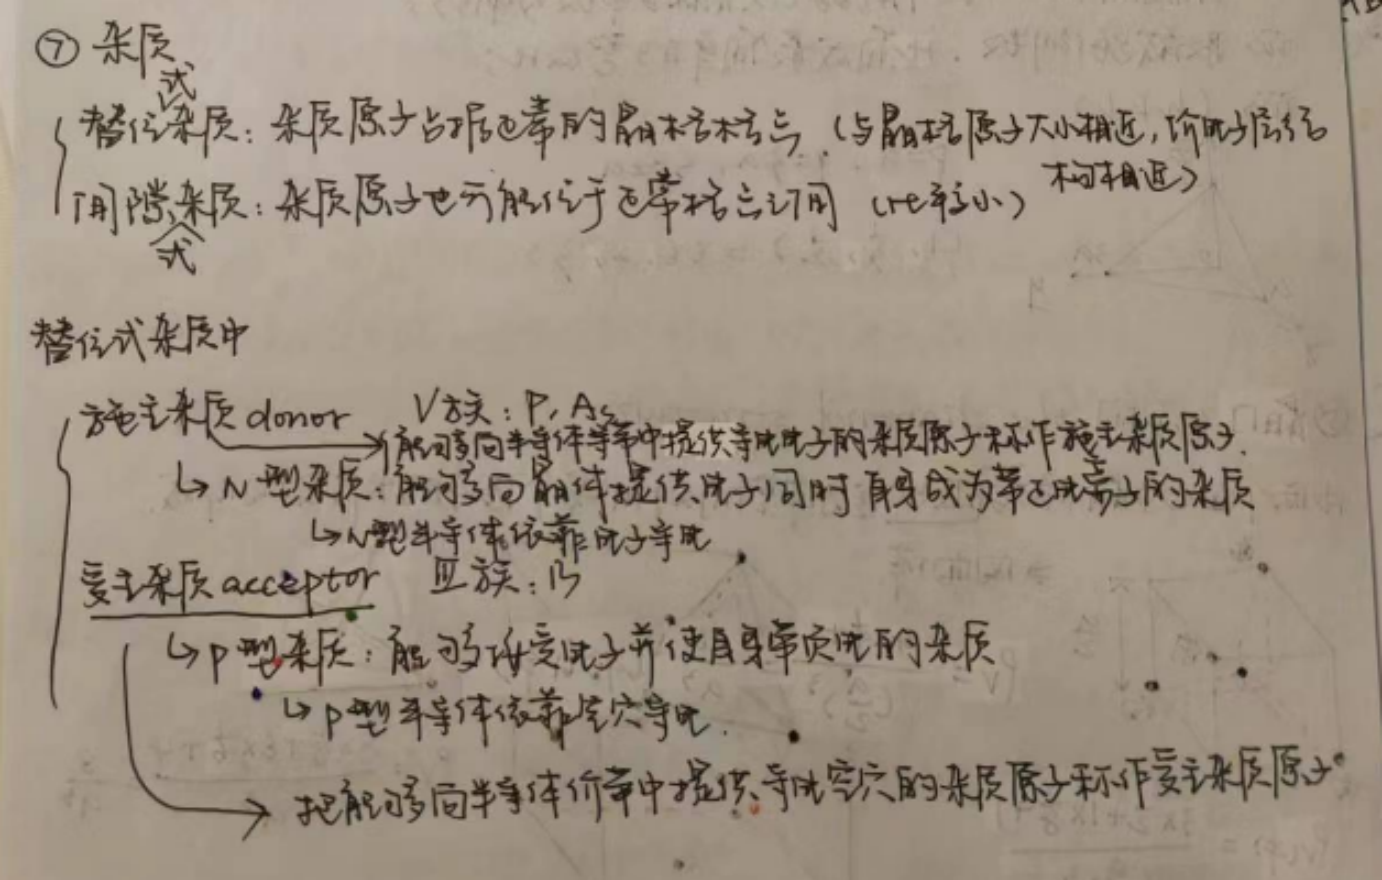 ⑦ 杂质
替位式杂质：杂质原子占据正常的晶格格点（与晶格原子大小相近，价电子层结
构相近）
间隙式杂质：杂质原子也可能位于正常格点之间（rc较小）
替位式杂质中
施主杂质 donor V族：P, As
能够向半导体导带中提供导电电子的杂质原子称作施主杂质原子.
↳ N型杂质：能够向晶体提供电子同时自身成为带正电离子的杂质
↳ N型半导体依靠电子导电
受主杂质 acceptor Ⅲ族：B
↳ P型杂质：能够接受电子并使自身带负电的杂质
↳ P型半导体依靠空穴导电.
把能够向半导体价带中提供导电空穴的杂质原子称作受主杂质原子